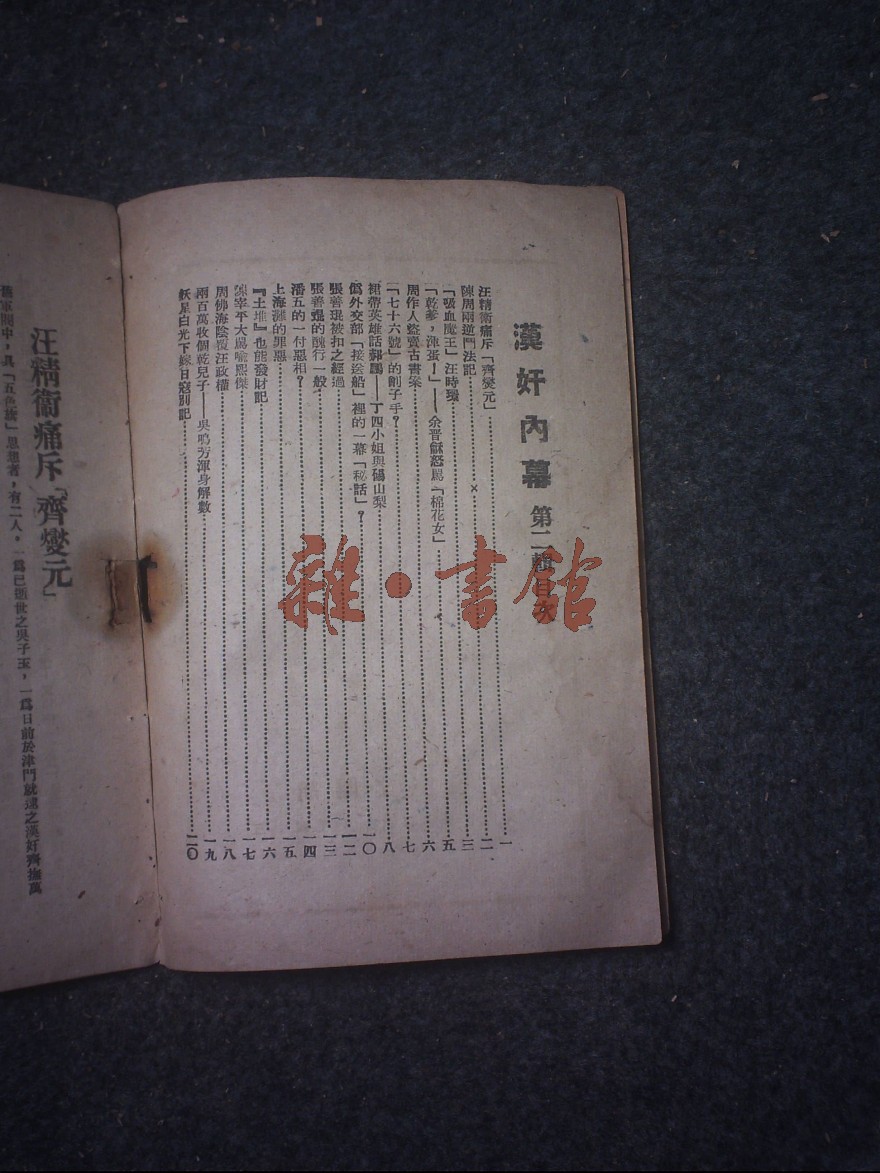 漢奸內幕 第二輯目次
汪精衛痛斥「齊燮元」……一
陳周兩逆鬥法記……二
×……三
「吸血魔王」汪時璟……五
「乾爹，渾蛋！」——余晉龢怒罵「棉花女」……六
周作人盜賣古書案……七
「七十六號」的劊子手？……八
裙帶英雄話郝鵬——丁四小姐與碭山梨……一〇
僞外交部「接送船」裡的一幕「秘話」？……一二
張善琨被扣之經過……一三
張善琨的醜行一般……一四
潘五的一付惡相？……一五
上海灘的罪惡……一六
『土堆』也能發財記……一七
陳宰平大罵喩熙傑……一八
周佛海陰覆汪政權
兩百萬收個乾兒子——吳鳴芳渾身解數……一九
妖星白光下嫁日寇別記……二〇
汪精衛痛斥「齊燮元」
舊軍閥中，具「五色旗」思想者，有二人，一爲已逝世之吳子玉，一爲日前於津門就逮之漢奸齊撫萬
雜·書館